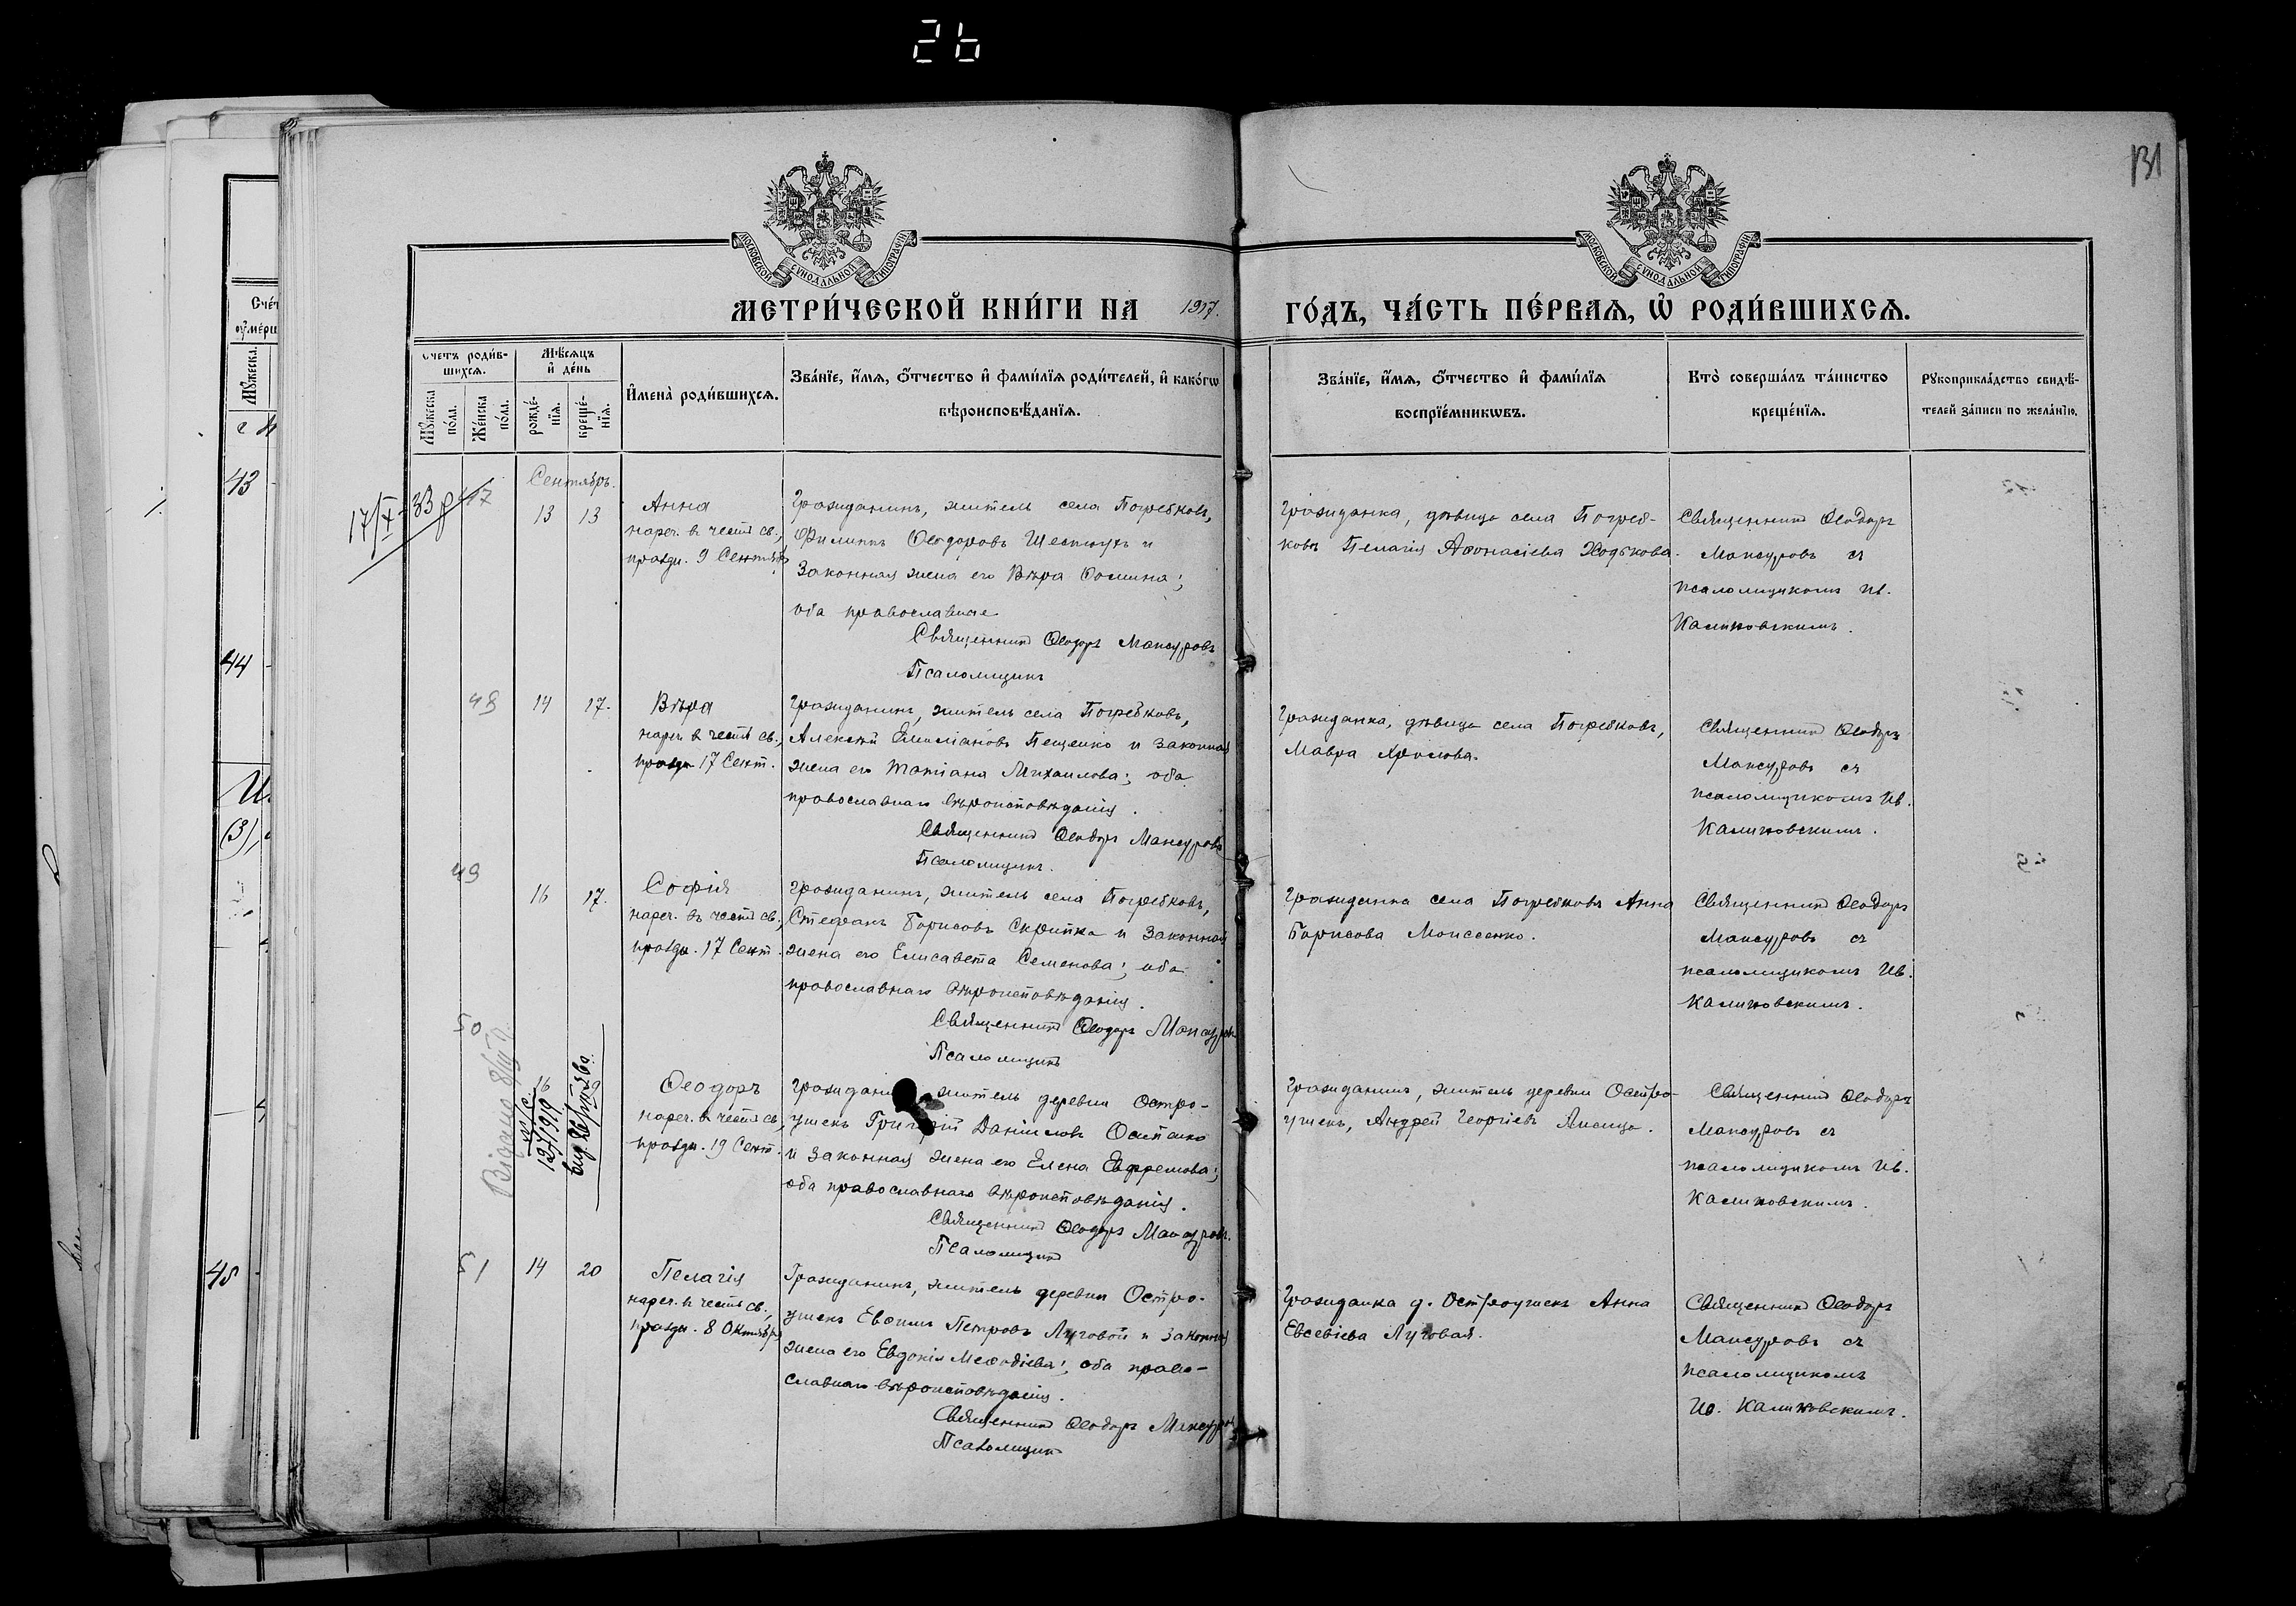 26
131
МОСКОВСКОЙ СѴНОДАЛЬНОЙ ТИПОГРАФІИ
МОСКОВСКОЙ СѴНОДАЛЬНОЙ ТИПОГРАФІИ
МЕТРИ́ЧЕСКОЙ КНИ́ГИ НА 1917. ГО́ДЪ, ЧА́СТЬ ПЕ́РВАѦ, Ѽ РОДИ́ВШИХСѦ.
Счетъ роди́в-
шихсѧ.
Мꙋ́жеска по́ла.
Же́нска по́ла.
Мѣ́сѧцъ и҆ де́нь
рожде́-
нїѧ.
креще́-
нїѧ.
И҆мена̀ роди́вшихсѧ.
Зва́нїе, и҆́мѧ, ѻ҆́тчество и҆ фами́лїѧ роди́телей, и҆ како́гѡ
вѣроисповѣ́данїѧ.
Зва́нїе, и҆́мѧ, ѻ҆́тчество и҆ фами́лїѧ
воспрїе́мникѡвъ.
Кто̀ соверша́лъ та́инство
креще́нїѧ.
Рꙋкоприкла́дство свидѣ́-
телей за́писи по жела́нїю.
43
44
45
Сентябрь.
17/X-33 р
47
13 13
Анна
нареч. в честь св.,
праздн. 9 Сентября
Гражданинъ, житель села Погребковъ,
Филиппъ Ѳеодоровъ Шестухъ и
законная жена его Вѣра Ѳомина;
оба православные
Священникъ Ѳеодоръ Мансуровъ
Псаломщикъ
Гражданка, дѣвица села Погреб-
ковъ Пелагія Аѳонасіева Ходькова.
Священникъ Ѳеодоръ
Мансуровъ съ
псаломщикомъ Ив.
Калиновскимъ.
48 14 17.
Вѣра
нареч. в честь св.,
праздн. 17 Сент.
Гражданинъ, житель села Погребковъ,
Алексѣй Емиліановъ Пещенко и законная
жена его Татіана Михаилова; оба
православнаго вѣроисповѣданія.
Священникъ Ѳеодоръ Мансуровъ
Псаломщикъ.
Гражданка, дѣвица села Погребковъ,
Мавра Фролова.
Священникъ Ѳеодоръ
Мансуровъ съ
псаломщикомъ Ив.
Калиновскимъ.
49 16 17.
Софія
нареч. въ честь св.,
праздн. 17 Сент.
Гражданинъ, житель села Погребковъ,
Стефанъ Борисовъ Скрипка и законная
жена его Елисавета Семенова; оба
православнаго вѣроисповѣданія.
Священникъ Ѳеодоръ Мансуровъ
Псаломщикъ
Гражданка села Погребковъ Анна
Борисова Моисеенко.
Священникъ Ѳеодоръ
Мансуровъ съ
псаломщикомъ Ив.
Калиновскимъ.
50
16
Ѳеодоръ
нареч. в честь св.,
праздн. 19 Сент.
Гражданинъ, житель деревни Остро-
ушекъ Григорій Даніиловъ Осипенко
и законная жена его Елена Евфремова;
оба православнаго вѣроисповѣданія.
Священникъ Ѳеодоръ Мансуровъ.
Псаломщикъ
Гражданинъ, житель деревни Остро-
ушекъ, Андрей Георгіевъ Лисица.
Священникъ Ѳеодоръ
Мансуровъ съ
псаломщикомъ Ив.
Калиновскимъ.
51 14 20
Пелагія
нареч. в честь св.,
праздн. 8 Октября
Гражданинъ, житель деревни Остро-
ушекъ Евѳимъ Петровъ Луговой и законная
жена его Евдокія Меѳодіева; оба право-
славнаго вѣроисповѣданія.
Священникъ Ѳеодоръ Мансуровъ
Псаломщикъ
Гражданка д. Остроушекъ Анна
Евсевіева Луговая.
Священникъ Ѳеодоръ
Мансуровъ съ
псаломщикомъ
Ив. Калиновскимъ.